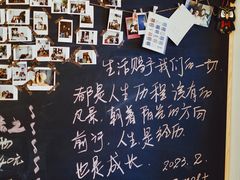 生活赐予我们的一切
都是人生历程该有的
风景，朝着阳光的方向
前行，人生是经历
也是成长.
2023.2.